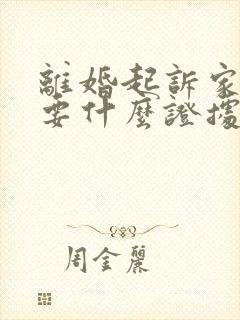 離婚起訴家
要什麼證據
周金麗